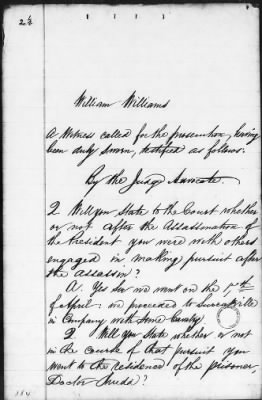 2½
William Williams
A Witness called for the prosecution, having
been duly Sworn, testified as follows:
By the Judge Advocate.
Q Will you State to the Court whether
or not after the Assassination of
the President you were with others
engaged in making pursuit after
the assassin?
A. Yes Sir we went on the 17th
of April: we proceeded to Surrattville
in Company with some Cavalry.
Q Will you State whether or not
in the course of that pursuit you
went to the residence of the prisoner,
Doctor Mudd?